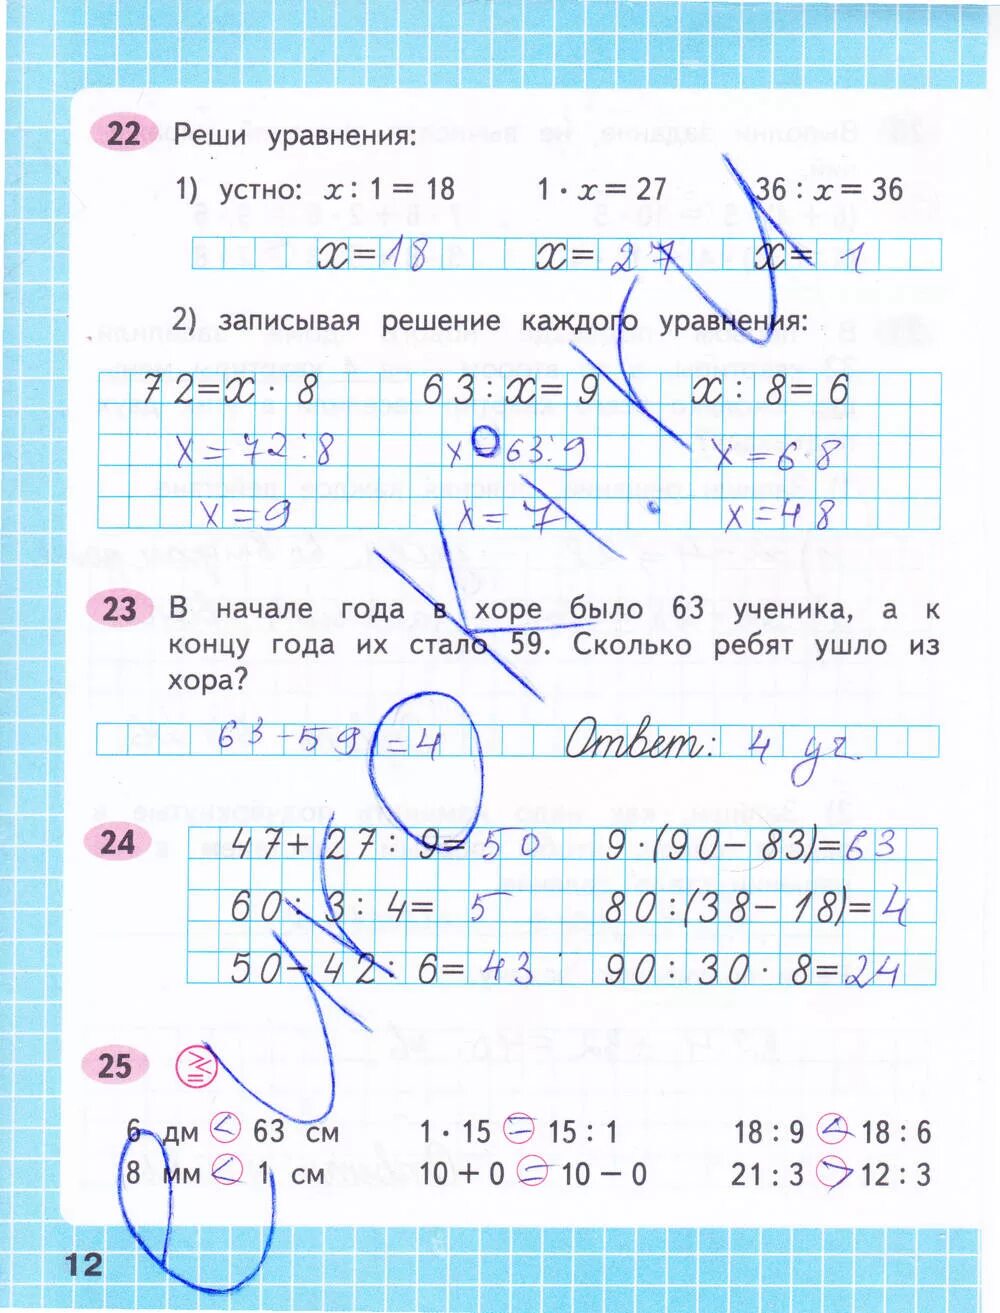 22 Реши уравнения:
1) устно: x : 1 = 18 1 · x = 27 36 : x = 36
x = 18 x = 27 x = 1
2) записывая решение каждого уравнения:
72 = x · 8 63 : x = 9 x : 8 = 6
x = 72 : 8 x = 63 : 9 x = 6 · 8
x = 9 x = 7 x = 48
23 В начале года в хоре было 63 ученика, а к
концу года их стало 59. Сколько ребят ушло из
хора?
63 - 59 = 4 Ответ: 4 уч.
24 47 + 27 : 9 = 50 9 · (90 - 83) = 63
60 : 3 : 4 = 5 80 : (38 - 18) = 4
50 - 42 : 6 = 43 90 : 30 · 8 = 24
25 ><=
6 дм < 63 см 1 · 15 = 15 : 1 18 : 9 < 18 : 6
8 мм < 1 см 10 + 0 = 10 - 0 21 : 3 > 12 : 3
12